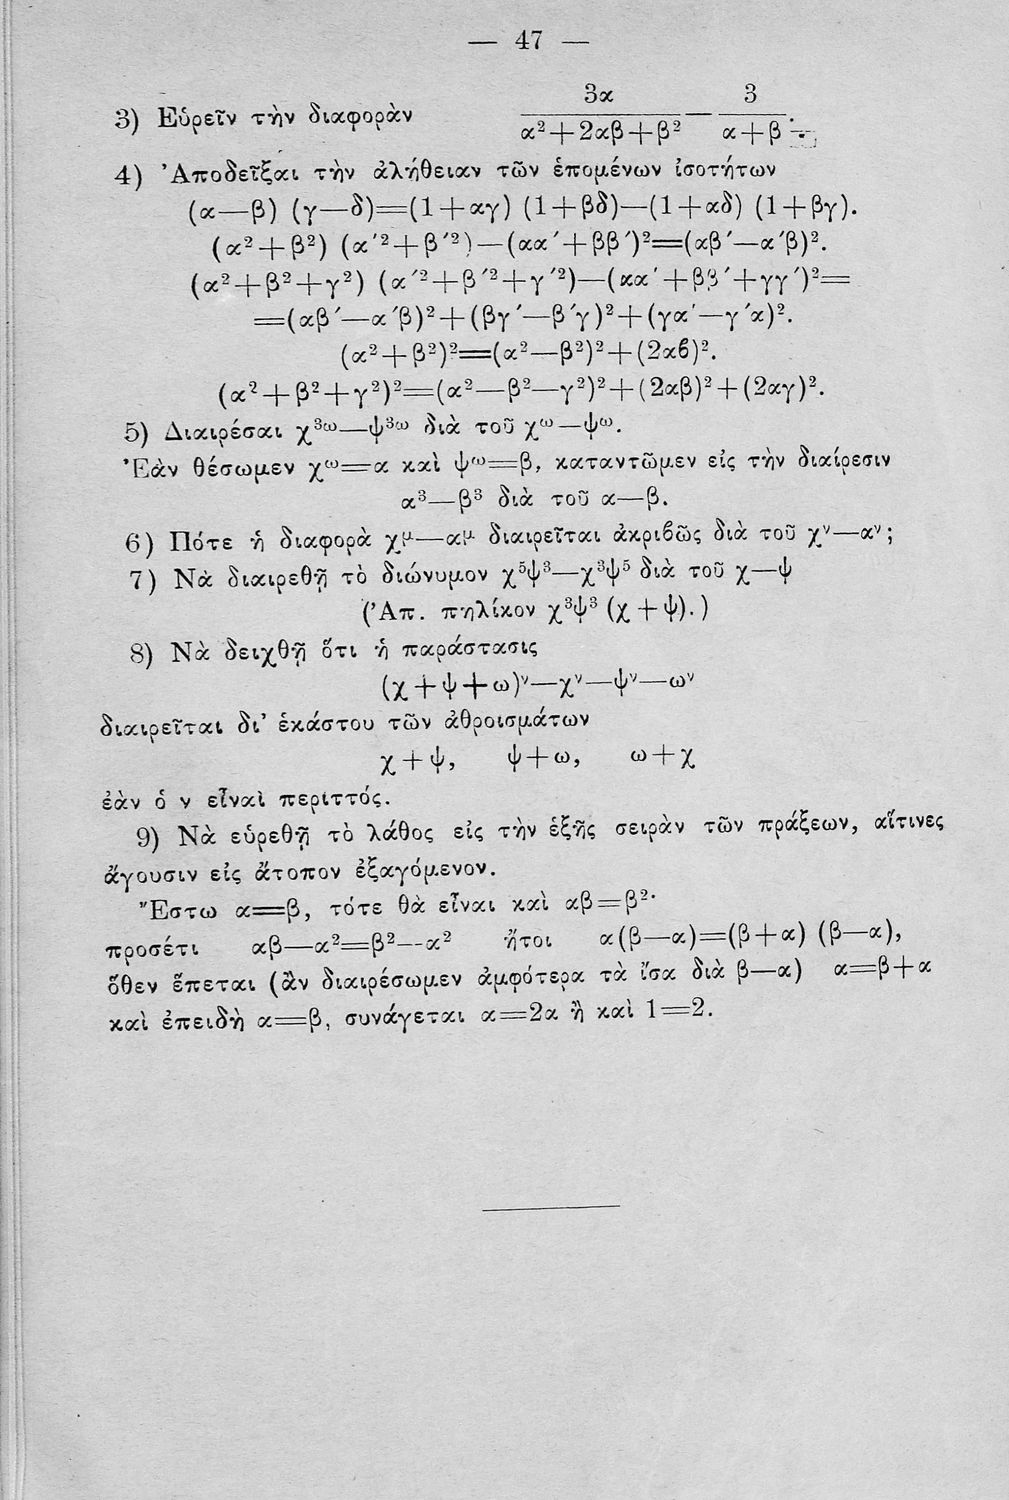 — 47 —
3) Εὑρεῖν τὴν διαφορὰν 3α/(α²+2αβ+β²) — 3/(α+β).
4) Ἀποδεῖξαι τὴν ἀλήθειαν τῶν ἑπομένων ἰσοτήτων
(α—β) (γ—δ)=(1+αγ) (1+βδ)—(1+αδ) (1+βγ).
(α²+β²) (α′²+β′²)—(αα′+ββ′)²=(αβ′—α′β)².
(α²+β²+γ²) (α′²+β′²+γ′²)—(αα′+ββ′+γγ′)²=
=(αβ′—α′β)²+(βγ′—β′γ)²+(γα′—γ′α)².
(α²+β²)²=(α²—β²)²+(2αϐ)².
(α²+β²+γ²)²=(α²—β²—γ²)²+(2αβ)²+(2αγ)².
5) Διαιρέσαι χ³ᵚ—ψ³ᵚ διὰ τοῦ χᵚ—ψᵚ.
Ἐὰν θέσωμεν χᵚ=α καὶ ψᵚ=β, καταντῶμεν εἰς τὴν διαίρεσιν
α³—β³ διὰ τοῦ α—β.
6) Πότε ἡ διαφορὰ χ^μ—α^μ διαιρεῖται ἀκριϐῶς διὰ τοῦ χ^ν—α^ν;
7) Νὰ διαιρεθῇ τὸ διώνυμον χ⁵ψ³—χ³ψ⁵ διὰ τοῦ χ—ψ
(Ἀπ. πηλίκον χ³ψ³ (χ+ψ).)
8) Νὰ δειχθῇ ὅτι ἡ παράστασις
(χ+ψ+ω)^ν—χ^ν—ψ^ν—ω^ν
διαιρεῖται δι’ ἑκάστου τῶν ἀθροισμάτων
χ+ψ, ψ+ω, ω+χ
ἐὰν ὁ ν εἶναὶ περιττός.
9) Νὰ εὑρεθῇ τὸ λάθος εἰς τὴν ἑξῆς σειρὰν τῶν πράξεων, αἵτινες
ἄγουσιν εἰς ἄτοπον ἐξαγόμενον.
Ἔστω α=β, τότε θὰ εἶναι καὶ αβ=β²·
προσέτι αβ—α²=β²—α² ἤτοι α(β—α)=(β+α) (β—α),
ὅθεν ἕπεται (ἂν διαιρέσωμεν ἀμφότερα τὰ ἴσα διὰ β—α) α=β+α
καὶ ἐπειδὴ α=β, συνάγεται α=2α ἢ καὶ 1=2.